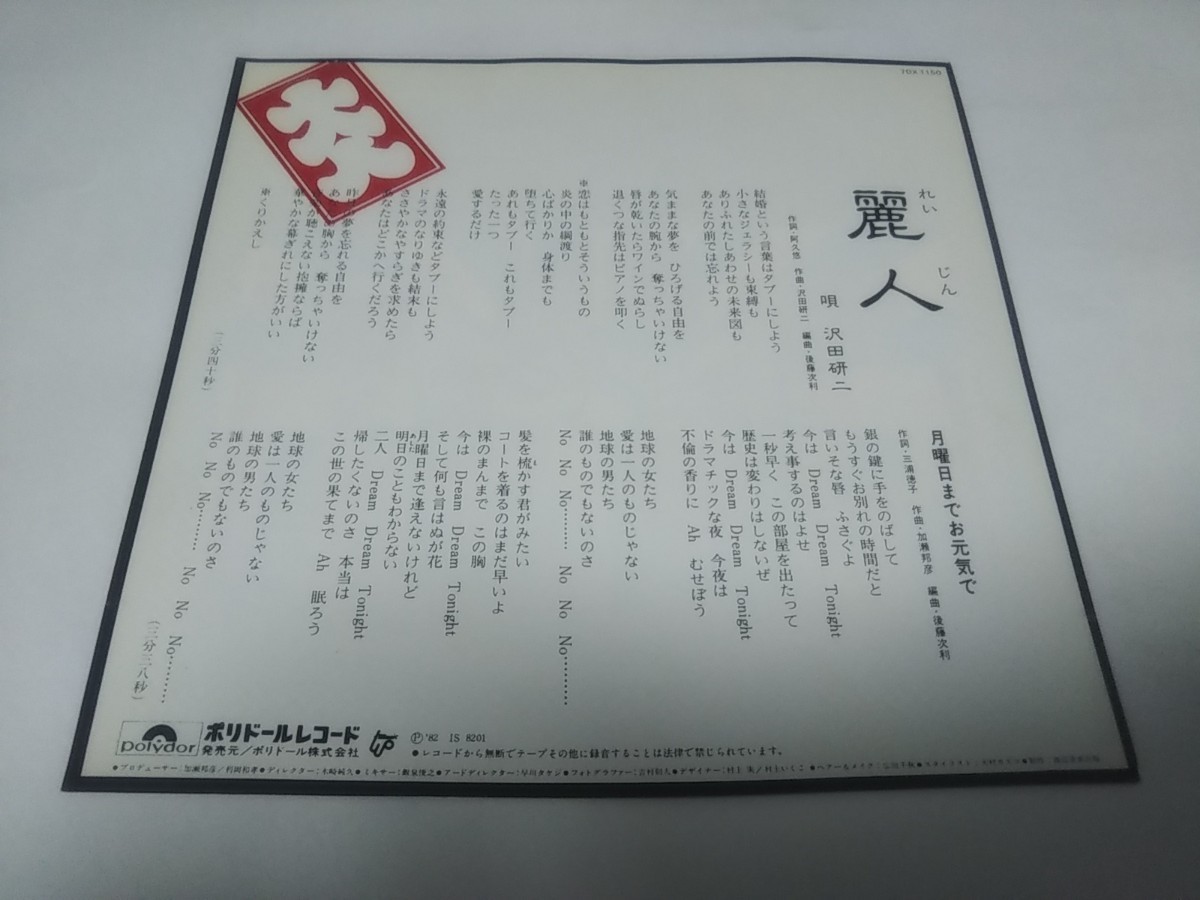 7DX1150
麗人
れい じん
唄 沢田研二
作詞・阿久悠 作曲・沢田研二 編曲・後藤次利
結婚という言葉はタブーにしよう
小さなジェラシーも束縛も
ありふれたしあわせの未来図も
あなたの前では忘れよう
気ままな夢を ひろげる自由を
あなたの腕から 奪っちゃいけない
唇が乾いたらワインでぬらし
退くつな指先はピアノを叩く
※恋はもともとそういうもの
炎の中の綱渡り
心ばかりか 身体までも
堕ちて行く
あれもタブー これもタブー
たった一つ
愛するだけ
永遠の約束などタブーにしよう
ドラマのなりゆきも結末も
ささやかなやすらぎを求めたら
あなたはどこかへ行くだろう
昨日の夢を忘れる自由を
胸から 奪っちゃいけない
聴こえない抱擁ならば
華やかな幕ぎれにした方がいい
※くりかえし
(三分四十秒)
月曜日までお元気で
作詞・三浦徳子 作曲・加瀬邦彦 編曲・後藤次利
銀の鍵に手をのばして
もうすぐお別れの時間だと
言いそな唇 ふさぐよ
今は Dream Dream Tonight
考え事するのはよせ
一秒早く この部屋を出たって
歴史は変わりはしないぜ
今は Dream Dream Tonight
ドラマチックな夜 今夜は
不倫の香りに Ah むせぼう
地球の女たち
愛は一人のものじゃない
地球の男たち
誰のものでもないのさ
No No No……… No No No No………
髪を梳かす君がみたい
コートを着るのはまだ早いよ
裸のまんまで この胸
今は Dream Dream Tonight
そして何も言はぬが花
月曜日まで逢えないけれど
明日のこともわからない
二人 Dream Dream Tonight
帰したくないのさ 本当は
この世の果てまで Ah 眠ろう
地球の女たち
愛は一人のものじゃない
地球の男たち
誰のものでもないのさ
No No No……… No No No No………
(三分三八秒)
polydor ポリドールレコード
発売元/ポリドール株式会社
Ⓟ'82 IS 8201
●レコードから無断でテープその他に録音することは法律で禁じられています。
●プロデューサー:加瀬邦彦/ ●ディレクター:木﨑純久●ミキサー:飯泉俊之●アートディレクター:早川タケジ●フォトグラファー: ●デザイナー:村上 実/村上いくこ